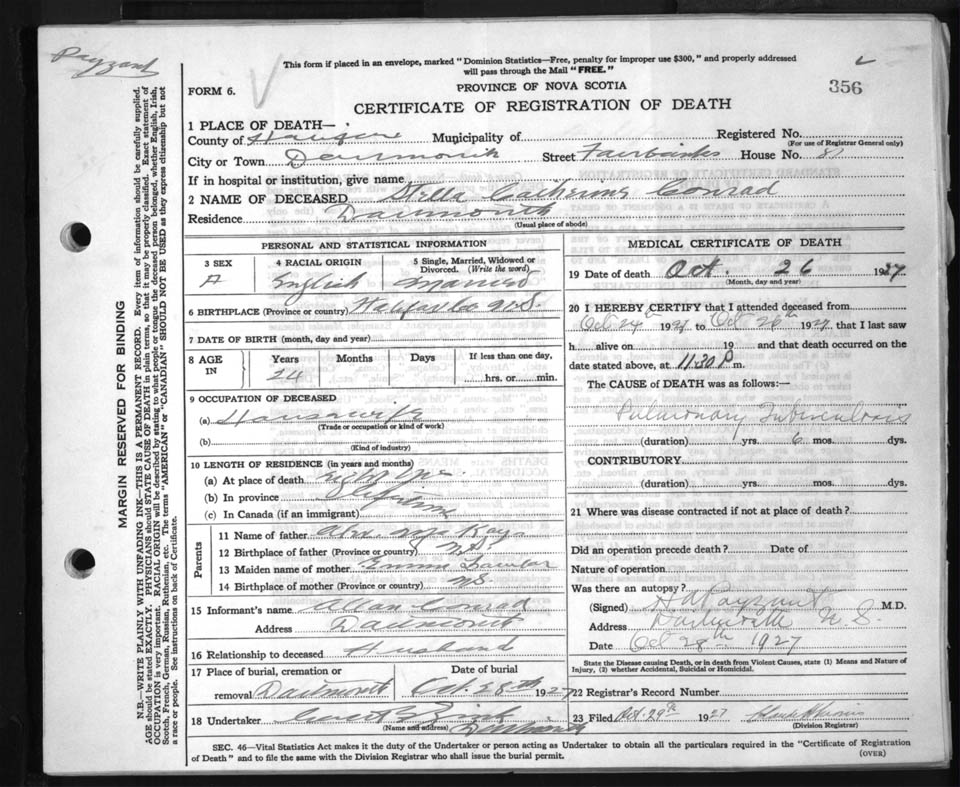 Payzant
This form if placed in an envelope, marked "Dominion Statistics—Free, penalty for improper use $300," and properly addressed
will pass through the Mail "FREE."
FORM 6.
PROVINCE OF NOVA SCOTIA
356
CERTIFICATE OF REGISTRATION OF DEATH
1 PLACE OF DEATH—
County of Halifax Municipality of Registered No.
(For use of Registrar General only)
City or Town Dartmouth Street Fairbanks House No.
If in hospital or institution, give name
2 NAME OF DECEASED Stella Catherine Conrad
Residence Dartmouth
(Usual place of abode)
PERSONAL AND STATISTICAL INFORMATION
3 SEX 4 RACIAL ORIGIN 5 Single, Married, Widowed or
Divorced. (Write the word)
English Married
6 BIRTHPLACE (Province or country) Halifax Co N.S.
7 DATE OF BIRTH (month, day and year)
8 AGE IN Years Months Days If less than one day,
24 hrs. or min.
9 OCCUPATION OF DECEASED
(a) Housewife
(Trade or occupation or kind of work)
(b)
(Kind of industry)
10 LENGTH OF RESIDENCE (in years and months)
(a) At place of death Eight yrs.
(b) In province Lifetime
(c) In Canada (if an immigrant)
Parents
11 Name of father Kay
12 Birthplace of father (Province or country) N.S.
13 Maiden name of mother Emma Lawlor
14 Birthplace of mother (Province or country) N.S.
15 Informant's name Allan Conrad
Address Dartmouth
16 Relationship to deceased Husband
17 Place of burial, cremation or Date of burial
removal Dartmouth Oct. 28th 1927
18 Undertaker Zink
(Name and address) Dartmouth
MEDICAL CERTIFICATE OF DEATH
19 Date of death Oct. 26 1927
(Month, day and year)
20 I HEREBY CERTIFY that I attended deceased from
Oct 24th 1927 to Oct 26th 1927 that I last saw
h alive on 19 and that death occurred on the
date stated above, at 11.30 P m.
The CAUSE of DEATH was as follows:—
Pulmonary Tuberculosis
(duration) yrs. 6 mos. dys.
CONTRIBUTORY
(duration) yrs. mos. dys.
21 Where was disease contracted if not at place of death?
Did an operation precede death? Date of
Nature of operation
Was there an autopsy?
(Signed) H A Payzant M.D.
Address Dartmouth N.S.
Date Oct 28th 1927
State the Disease causing Death, or in death from Violent Causes, state (1) Means and Nature of
Injury, (2) whether Accidental, Suicidal or Homicidal.
22 Registrar's Record Number
23 Filed Oct 29th 1927
(Division Registrar)
SEC. 46—Vital Statistics Act makes it the duty of the Undertaker or person acting as Undertaker to obtain all the particulars required in the "Certificate of Registration
of Death" and to file the same with the Division Registrar who shall issue the burial permit.
(OVER)
MARGIN RESERVED FOR BINDING
N.B.—WRITE PLAINLY WITH UNFADING INK—THIS IS A PERMANENT RECORD. Every item of information should be carefully supplied.
AGE should be stated EXACTLY. PHYSICIANS should STATE CAUSE OF DEATH in plain terms, so that it may be properly classified. Exact statement of
OCCUPATION is very important. RACIAL ORIGIN will be described by stating to what people or tongue the deceased person belonged, whether English, Irish,
Scotch, French, German, Russian, Ruthenian, etc. The terms "AMERICAN" or "CANADIAN" SHOULD NOT BE USED as they express citizenship but not
a race or people. See instructions on back of Certificate.